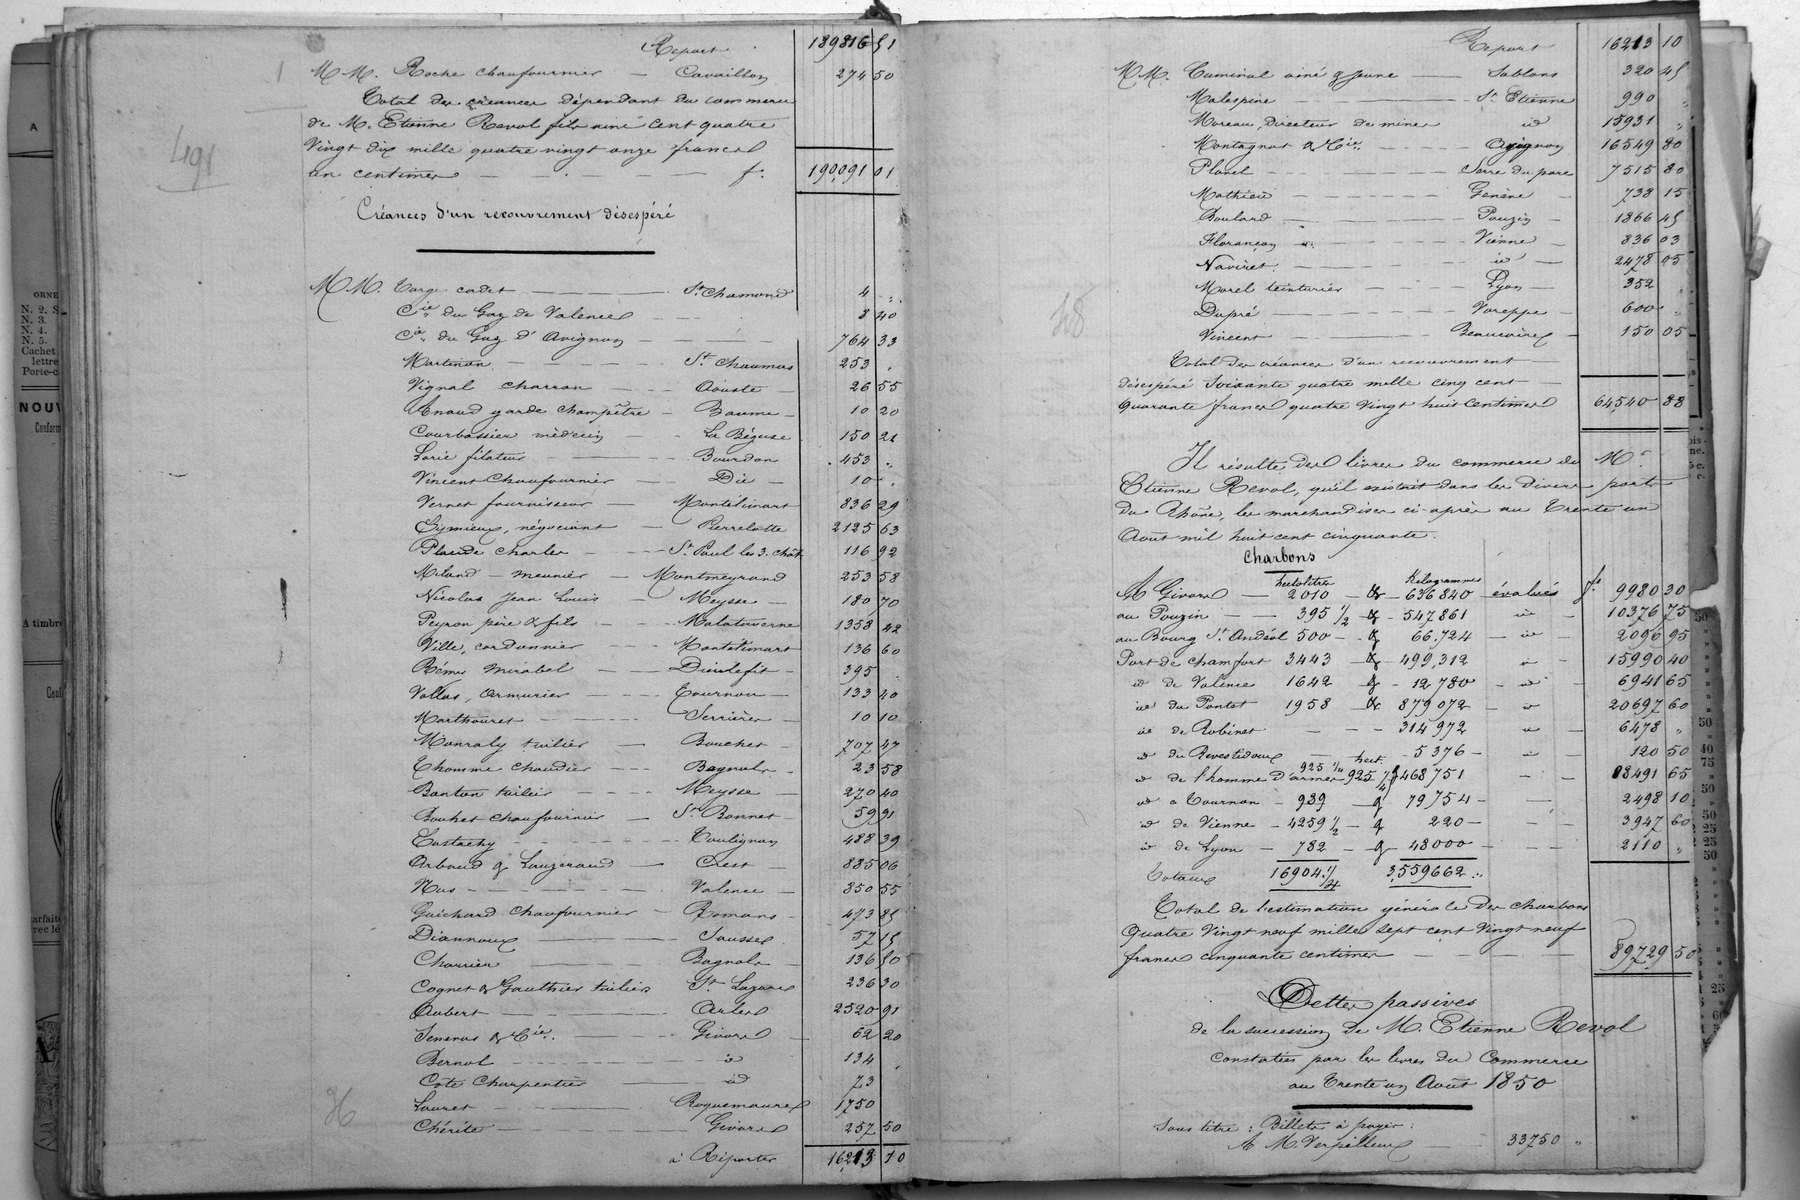 Report 189816 51
MM. Roche chaufournier — Cavaillon 274 50
Total des créances dépendant du commerce
de M. Etienne Revol fils ainé cent quatre
vingt dix mille quatre vingt onze francs
un centimes — f. 190091 01
Créances d'un recouvrement désespéré
MM. Targe cadet — St Chamond 4 "
Cie du Gaz de Valence 8 40
Cie du Gaz d'Avignon 764 33
Martinon — St Chaumas 253 "
Vignal charron — Aouste 26 55
Arnaud garde champêtre — Baume 10 20
Courbassier médecin — La Bégude 150 21
Lorie filateur — Bourdon 453 "
Vincent Chaufournier — Die 10 "
Vernet fournisseur — Montélimart 836 29
Eymieux, négociant — Pierrelatte 2125 63
Placide Charles — St Paul les 3. chât 116 92
Miland — meunier — Montmeyrand 253 58
Nicolas Jean Louis — Meysse 180 70
Peyron père & fils — Malataverne 1358 42
Ville, cordonnier — Montélimart 136 60
Rémi Mirabel — Dieulefit 395
Vallas, Armurier — Tournon 133 40
Marthouret — Serrières 10 10
Monraly tuilier — Bouchet 707 47
Thomme Chaudier — Bagnols 23 58
Banton tuilier — Meysse 270 40
Bouhet chaufournier — St Bonnet 59 91
Eustachy — Taulignan 488 39
Arbaud & Lauzeraud — Crest 885 06
Nas — Valence 350 55
Guichard Chaufournier — Romans 473 85
Diannoux — Sausse 57 15
Charrier — Bagnols 136 50
Cognet & Gauthier tuiliers St Lazare 236 30
Aubert — Arles 2520 91
Seneras & Cie — Givors 62 20
Bernol — id 134 "
Cote Charpentier — id 73
Lauret — Roquemaure 1750
Chérite — Givors 257 50
à Reporter 16213 10
491
96
Report 16213 10
MM. Cuminal ainé & jeune — Sablons 320 45
Malespine — St Etienne 990 "
Moreau, Directeur de mines id 15931 "
Montagnat & Cie — Avignon 16549 80
Planel — Serre du parc 7515 80
Mathieu — Genève 738 15
Boulard — Pouzin 1866 45
Florançon — Vienne 836 03
Naviret — id 2478 05
Morel teinturier — Lyon 352 "
Dupré — Voreppe 600 "
Vincent — Beauvoires 150 05
Total des créances d'un recouvrement
désespéré Soixante quatre mille cinq cent
quarante francs quatre vingt huit centimes 64540 88
Il résulte des livres du commerce de Mr
Etienne Revol, qu'il existait dans les divers ports
du Rhône, les marchandises ci-après au Trente un
Août mil huit cent cinquante.
Charbons
hectolitres Kilogrammes
A Givors — 2010 — & — 636840 — évalués f. 9980 30
au Pouzin — 395 1/2 & — 547861 id 10376 75
au Bourg St Andéol 500 — & 66.724 — id — 2096 95
Port de Chamfort 3443 — & — 499,312 — id 15990 40
id de Valence 1642 & — 12780 — id 6941 65
id du Pontet 1958 — & 879072 — id 20697 60
id de Robinet — 314972 id 6478 "
id du Revestidoux — 5376 — id — 120 50
id de l'homme d'armes 925 1/4 hect. 925 1/4 & 468751 — 18491 65
id à Tournon — 939 — & 79754 — 2498 10
id de Vienne — 4259 1/2 — & 220 — 3947 60
id de Lyon — 782 — & 48000 — 2110 "
Totaux 16904. 1/4 3,559662 "
Total de l'estimation générale des charbons
Quatre Vingt neuf mille sept cent vingt neuf
francs cinquante centimes — 89729 50
Dettes passives
de la succession de M. Etienne Revol
constatées par les livres du Commerce
au Trente un Août 1850
Sous titre : Billets à payer.
A M. Verpilleux 33750 "
A
ORNE
N. 2. S
N. 3.
N. 4.
N. 5.
Cachet
lettre
Porte-c
NOUV
Conform
A timbre
Conf
arfaite
vec lé